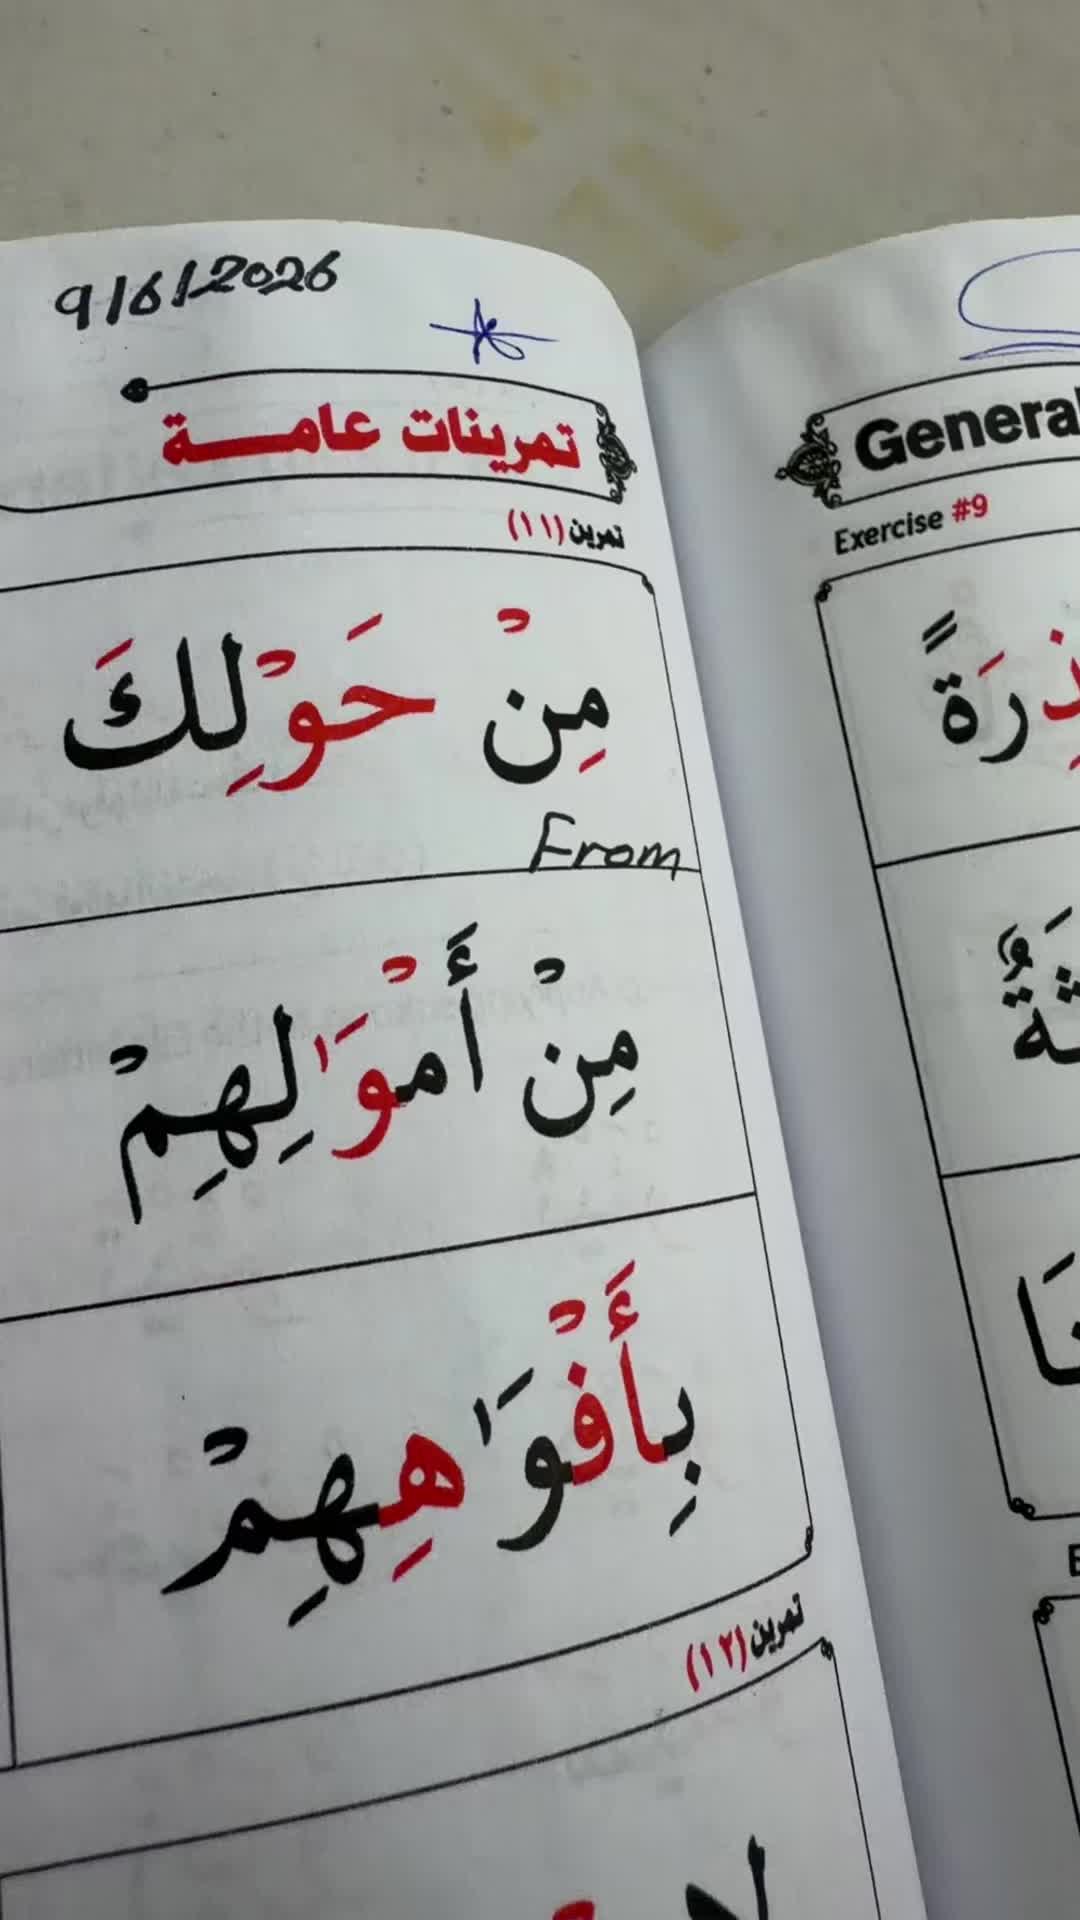 9/6/2026
تمرينات عامة
تمرين (١١)
مِنْ حَوْلِكَ
From
مِنْ أَمْوَٰلِهِمْ
بِأَفْوَٰهِهِمْ
تمرين (١٢)
General
Exercise #9